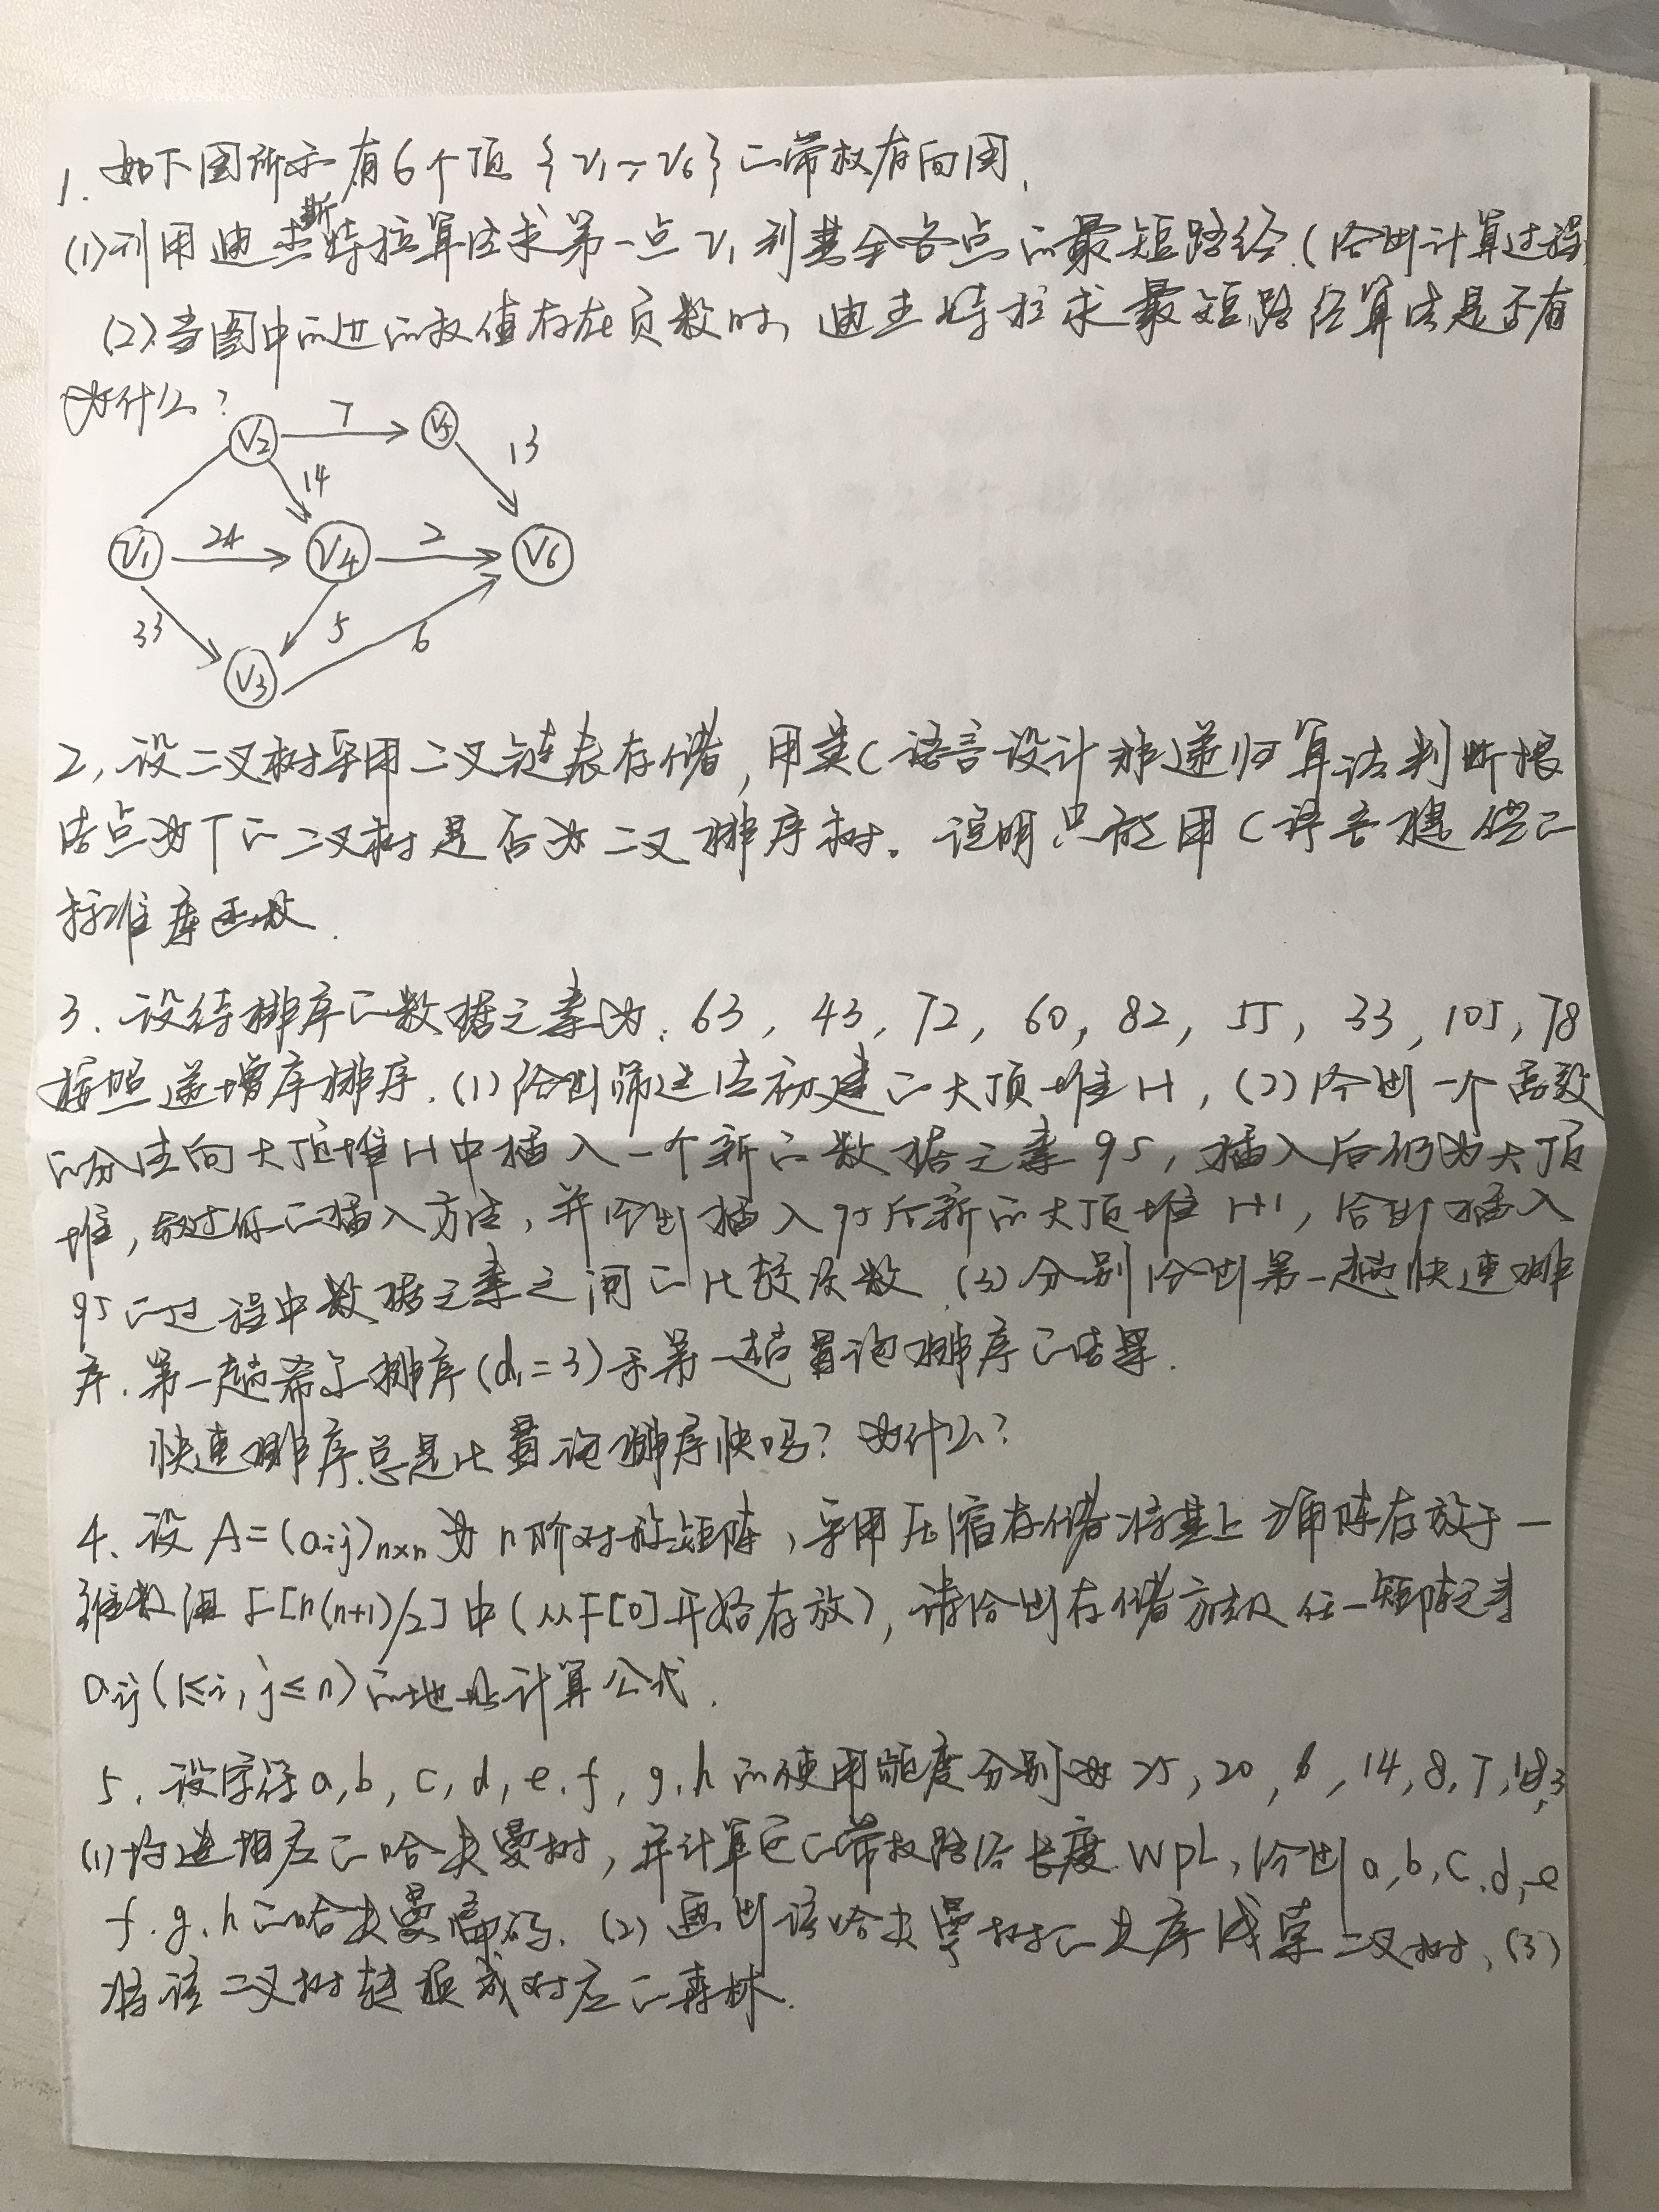 1. 如下图所示有6个顶{v1~v6}的带权有向图.
(1)利用迪杰斯特拉算法求第一点v1到其余各点的最短路径.(给出计算过程
(2).当图中的边的权值存在负数时,迪杰特拉求最短路径算法是否有
为什么?
V2 7 V5 13
14
V1 24 V4 2 V6
33 5 6
V3
2,设二叉树采用二叉链表存储,用类C语言设计非递归算法判断根
结点为T的二叉树是否为二叉排序树。说明只能用C语言提供的
标准库函数.
3.设待排序的数据元素为:63,43,72,60,82,55,33,105,78
按照递增序排序.(1)给出筛选法初建的大顶堆H,(2)给出一个高效
的方法向大顶堆H中插入一个新的数据元素95,插入后仍为大顶
堆,叙述你的插入方法,并给出插入95后新的大顶堆H1,给出插入
95的过程中数据元素之间的比较次数.(3)分别给出第一趟快速排
序.第一趟希尔排序(d1=3)和第一趟冒泡排序的结果.
快速排序总是比冒泡排序快吗?为什么?
4、设A=(aij)n×n为n阶对称矩阵,采用压缩存储将其上三角阵存放于一
维数组F[n(n+1)/2]中(从F[0]开始存放),请给出存储方法及任一矩阵元素
aij(1≤i,j≤n)的地址计算公式.
5.设字符a,b,c,d,e.f,g.h的使用频度分别为25,20,6,14,8,7,18,3
(1)构造相应的哈夫曼树,并计算它的带权路径长度WPL,给出a,b,c.d,e
f.g.h的哈夫曼编码.(2)画出该哈夫曼树的先序线索二叉树、(3)
将该二叉树转换成对应的森林.